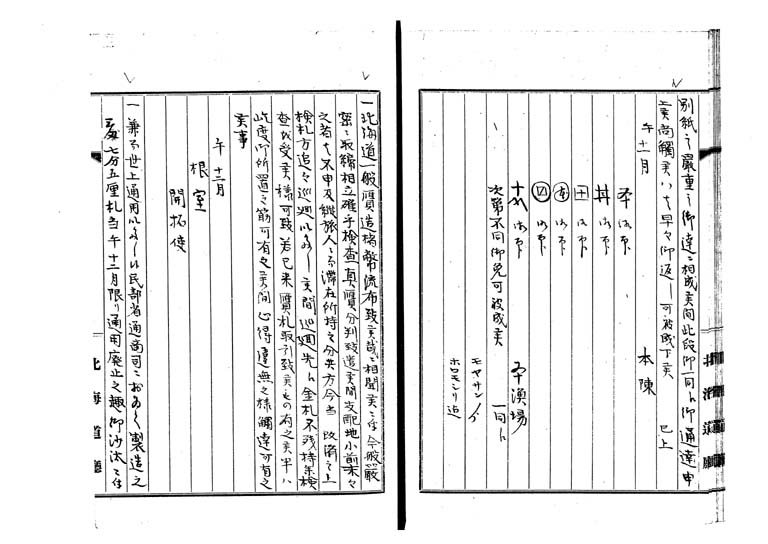 別紙之嚴重之御達ニ相成候間此段御一同ヘ御通達申
上候尚觸先ハ早々御返し可被成下候 已上
午十一月 本陳
御下
御下
御下
御下
御下
御下
次第不同御免可被成候
漁場
一同ヘ
モヤサンノ
ホロモシリ迠
一北海道一般贋造楮幣流布致候哉ニ相聞候ニ付今般嚴
密ニ取締相立確乎検査真贋分判致遣候間支配地小前末々
之者共不申及縦旅人ニ而滞在所持之分共方今当改済之上
検札方追々巡廻候間巡廻先ヘ金札不残持参検
査改受候様可致若已来贋札取引致候もの有之候半ハ
此度御所置之筋可有之候間心得違無之様觸達可有之
候事
午十二月
根室
開拓使
一兼而世上通用いたし候民部省通商司ニおゐて製造之
七分五厘札当午十二月限り通用廃止之趣御沙汰ニ付
北海道廳
北海道廳